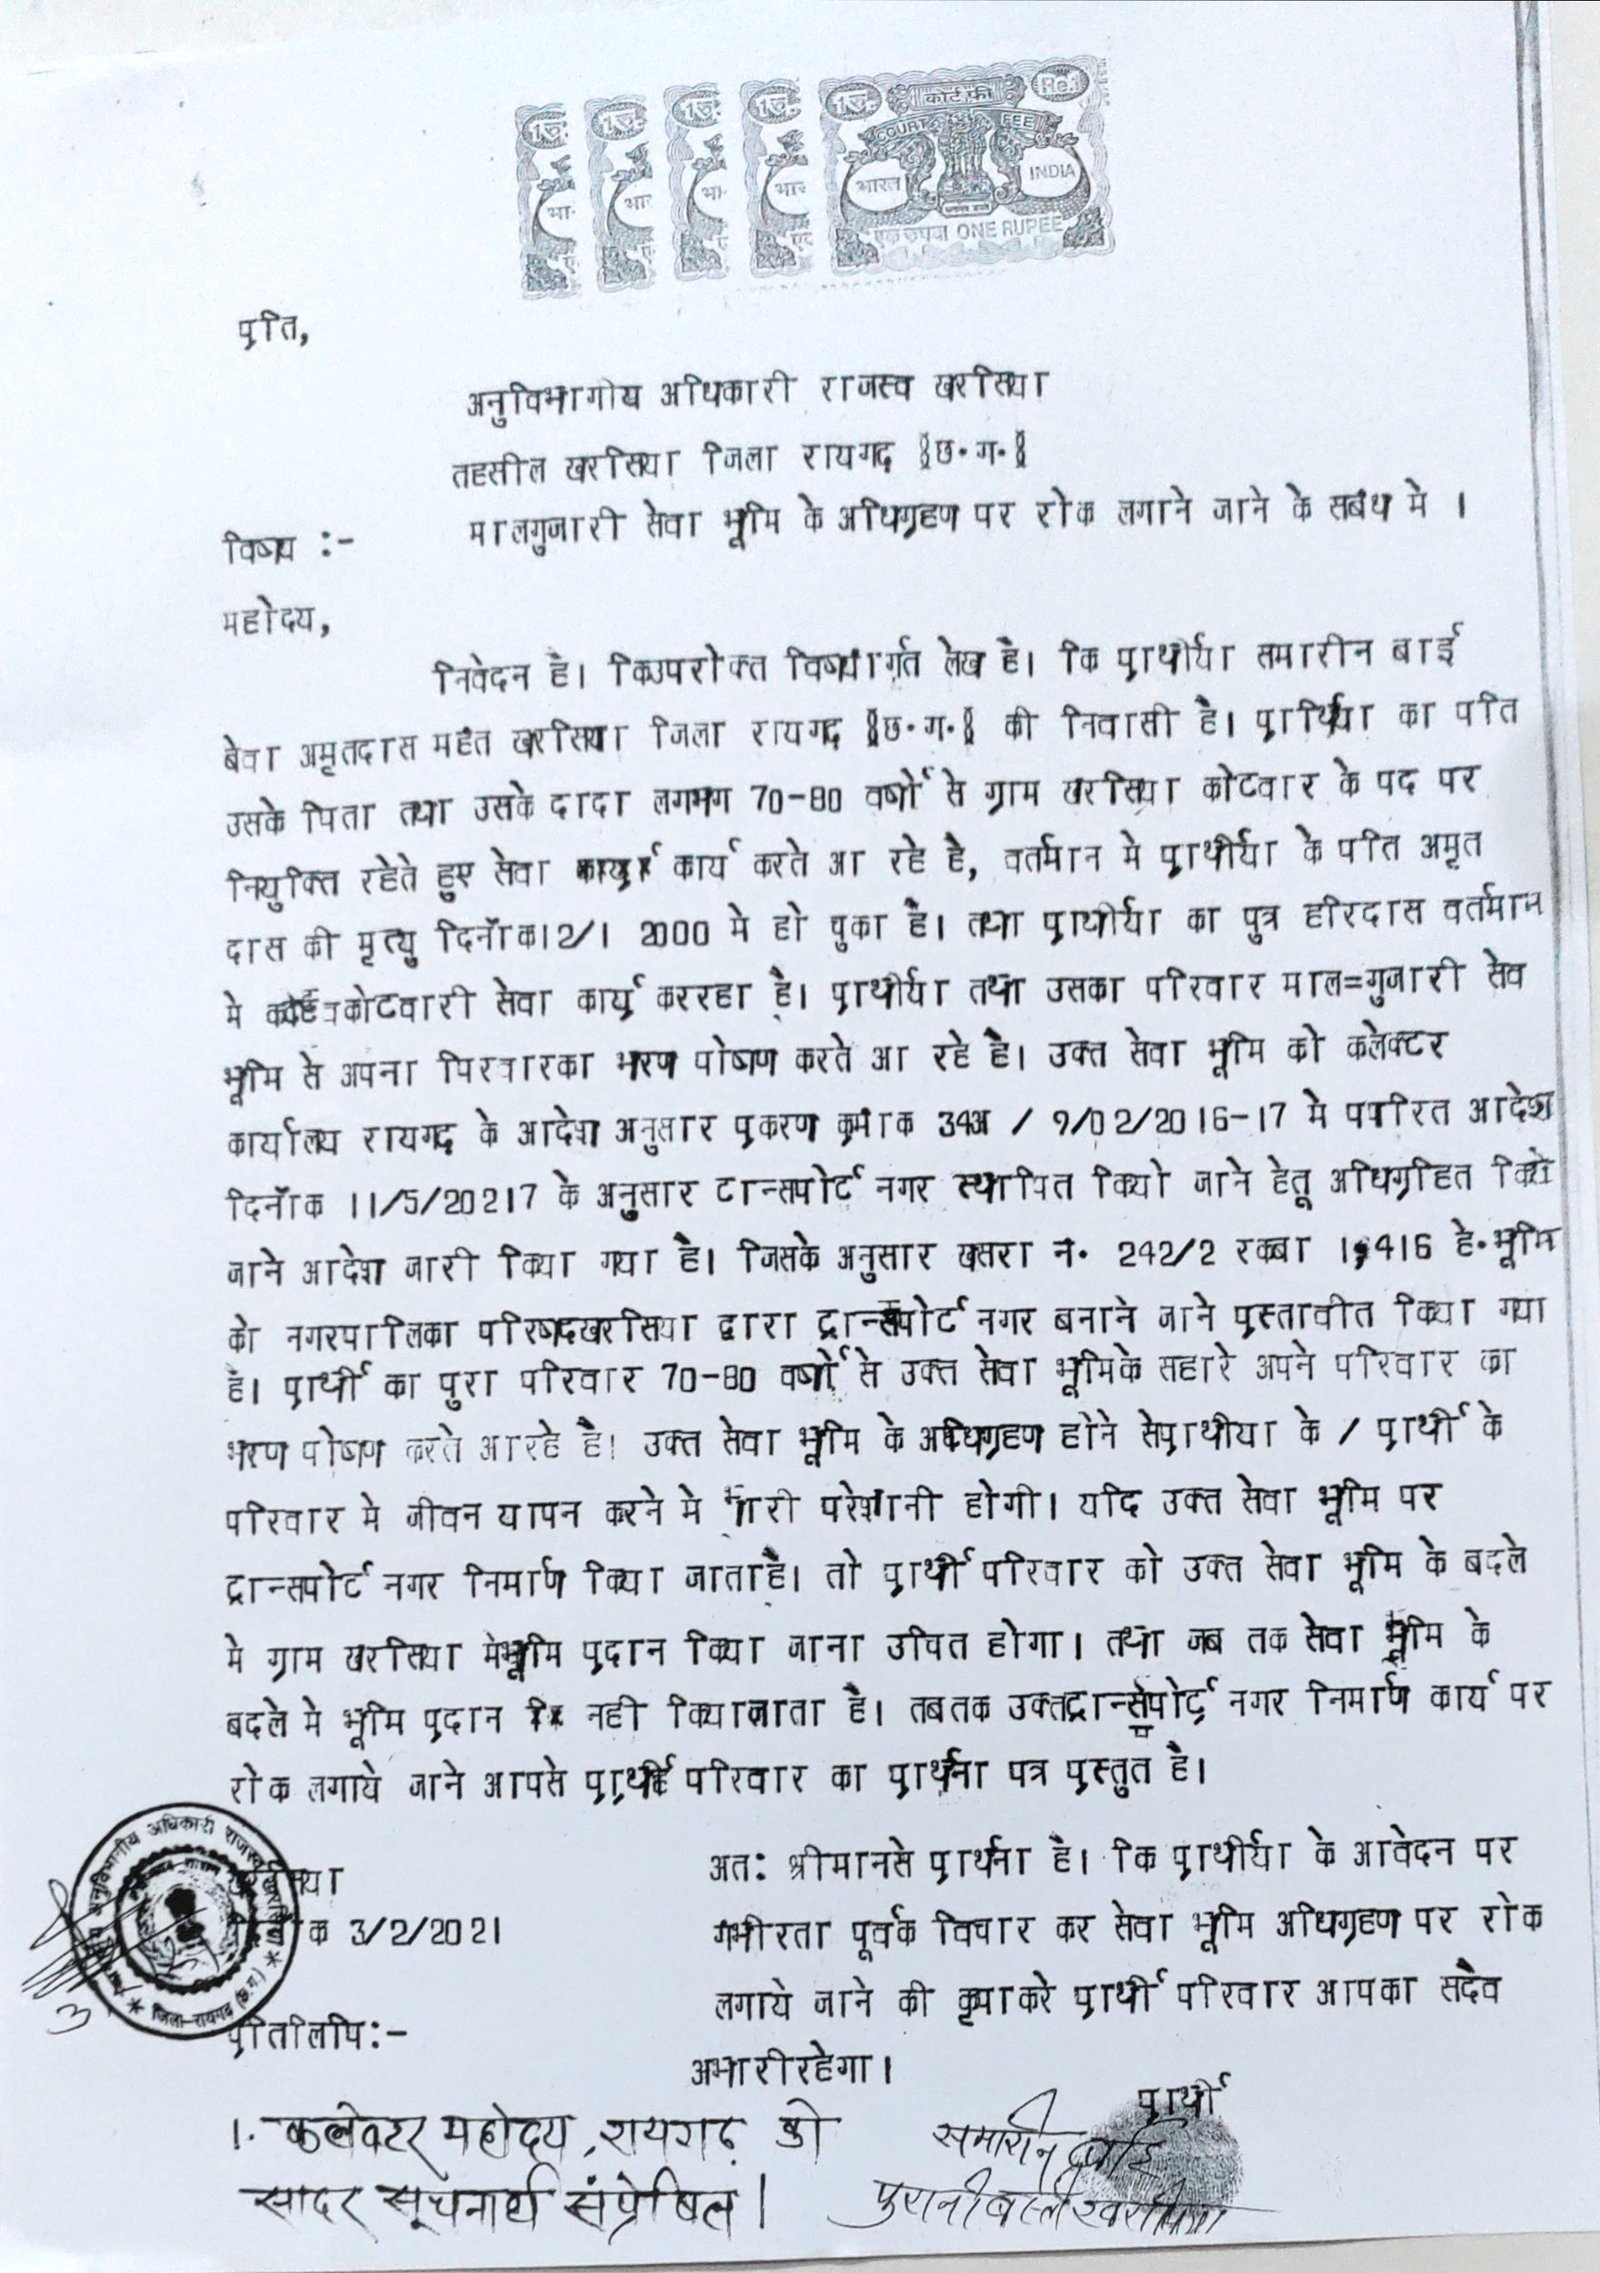 1रु. 1रु. 1रु. 1रु. 1रु. कोर्ट फी Re.1
COURT FEE
भा भार भा भार भारत INDIA
एक रुपया ONE RUPEE
प्रति,
अनुविभागीय अधिकारी राजस्व खरसिया
तहसील खरसिया जिला रायगढ़ §छ.ग.§
विषय :- मालगुजारी सेवा भूमि के अधिग्रहण पर रोक लगाने जाने के सबंध मे ।
महोदय,
निवेदन है। किउपरोक्त विषयार्गत लेख है। कि प्रार्थीया समारीन बाई
बेवा अमृतदास महंत खरसिया जिला रायगढ़ §छ.ग.§ की निवासी है। प्रार्थिया का पति
उसके पिता तथा उसके दादा लगभग 70-80 वर्षो से ग्राम खरसिया कोटवार के पद पर
नियुक्ति रहेते हुए सेवा कार्य करते आ रहे है, वर्तमान मे प्रार्थीया के पति अमृत
दास की मृत्यु दिनॉक12/1 2000 मे हो चुका है। तथा प्रार्थीया का पुत्र हरिदास वर्तमान
मे कोटवारी सेवा कार्य कररहा है। प्रार्थीया तथा उसका परिवार माल=गुजारी सेव
भूमि से अपना पिरवारका भरण पोषण करते आ रहे है। उक्त सेवा भूमि को कलेक्टर
कार्यालय रायगढ़ के आदेश अनुसार प्रकरण क्रमांक 34अ / 9/02/2016-17 मे पारित आदेश
दिनॉक 11/5/20217 के अनुसार टान्सपोर्ट नगर स्थापित कियो जाने हेतू अधिग्रहित किये
जाने आदेश जारी किया गया है। जिसके अनुसार खसरा नं. 242/2 रकबा 1,416 हे.भूमि
को नगरपालिका परिषदखरसिया द्वारा ट्रान्सपोर्ट नगर बनाने जाने प्रस्तावीत किया गया
है। प्रार्थी का पुरा परिवार 70-80 वर्षो से उक्त सेवा भूमिके सहारे अपने परिवार का
भरण पोषण करते आरहे है। उक्त सेवा भूमि के अधिग्रहण होने सेप्राथीया के / प्रार्थी के
परिवार मे जीवन यापन करने मे भारी परेशानी होगी। यदि उक्त सेवा भूमि पर
ट्रान्सपोर्ट नगर निमार्ण किया जाताहै। तो प्रार्थी परिवार को उक्त सेवा भूमि के बदले
मे ग्राम खरसिया मेभूमि प्रदान किया जाना उचित होगा। तथा जब तक सेवा भूमि के
बदले मे भूमि प्रदान नही कियाजाता है। तबतक उक्तट्रान्सपोर्ट नगर निमार्ण कार्य पर
रोक लगाये जाने आपसे प्रार्थी परिवार का प्रार्थना पत्र प्रस्तुत है।
अतः श्रीमानसे प्रार्थना है। कि प्रार्थीया के आवेदन पर
गंभीरता पूर्वक विचार कर सेवा भूमि अधिग्रहण पर रोक
लगाये जाने की कृपाकरे प्रार्थी परिवार आपका सदैव
अभारीरहेगा।
खरसिया
दिनॉक 3/2/2021
अनुविभागीय अधिकारी राजस्व खरसिया
* जिला-रायगढ़ (छ.ग.) *
प्रतिलिपि:-
1. कलेक्टर महोदय, रायगढ़ को
सादर सूचनार्थ संप्रेषित।
प्रार्थी
समारीन बाई
पुरानीबस्ती खरसिया